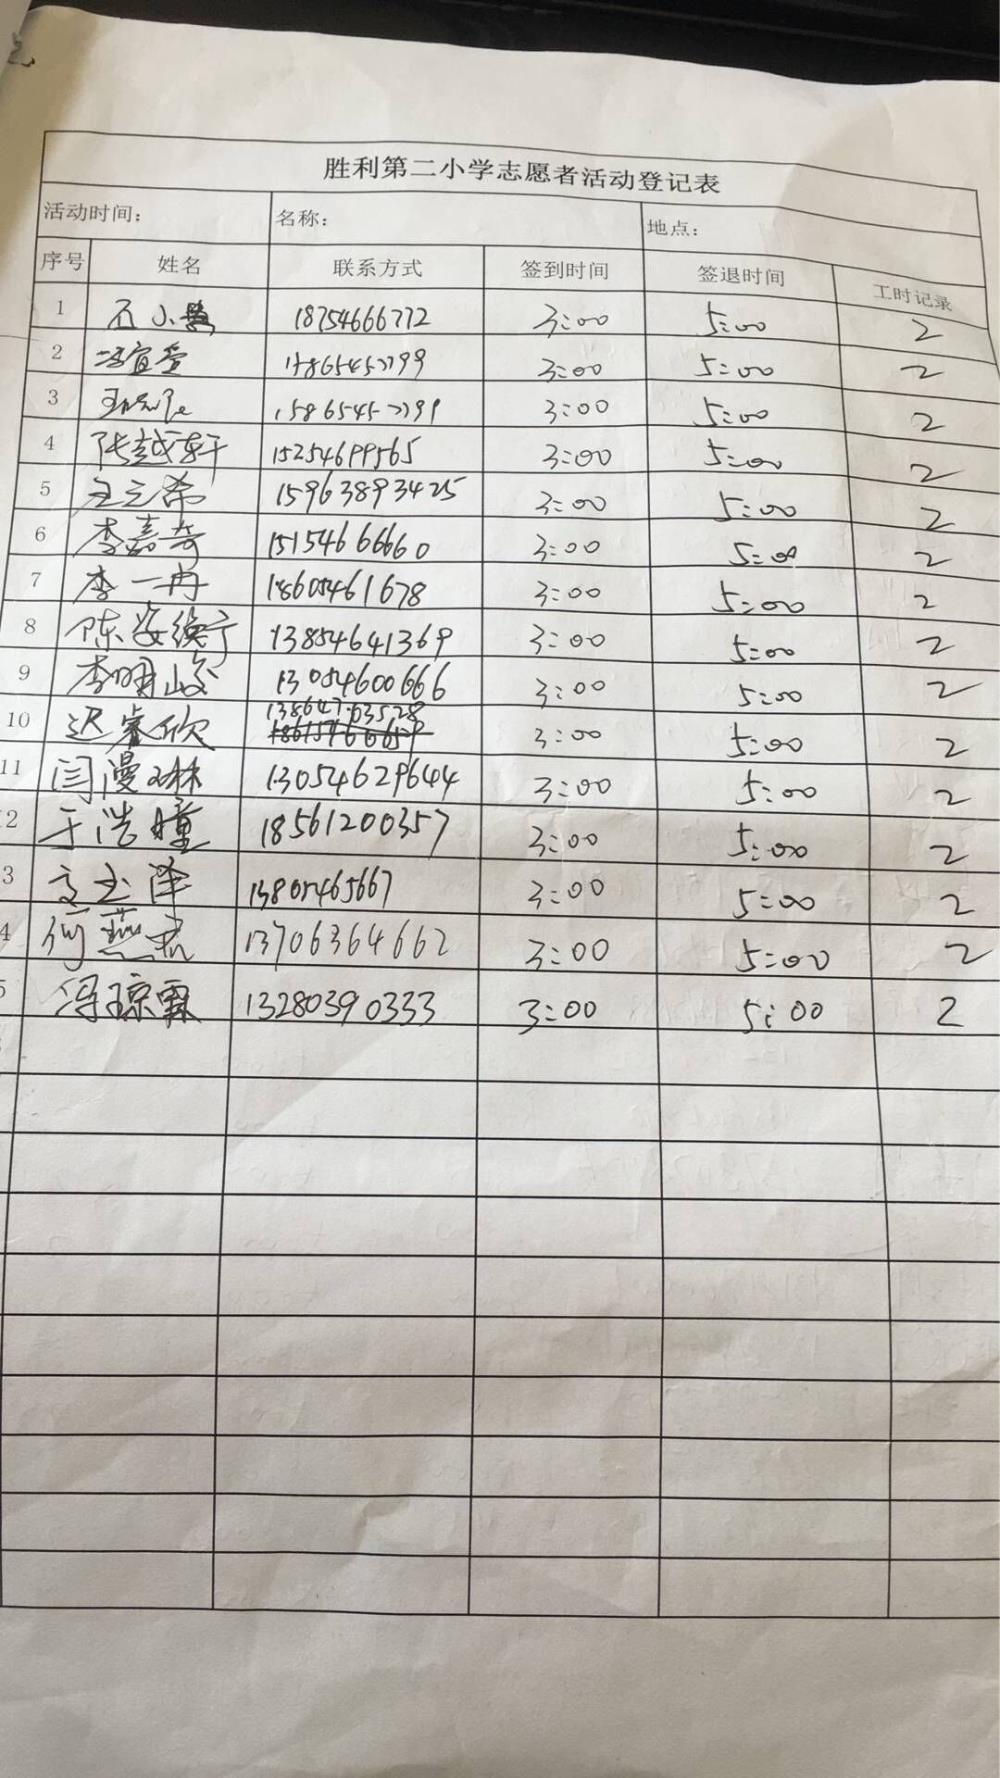 胜利第二小学志愿者活动登记表
活动时间: 名称: 地点:
序号 姓名 联系方式 签到时间 签退时间 工时记录
1 石小 18754666772 3:00 5:00 2
2 冯宜萱 3:00 5:00 2
3 3:00 5:00 2
4 张越轩 15254699565 3:00 5:00 2
5 王立希 15963893425 3:00 5:00 2
6 李嘉奇 15154666660 3:00 5:00 2
7 李一冉 18605461678 3:00 5:00 2
8 陈姿绮 13854641369 3:00 5:00 2
9 李明峻 13054600666 3:00 5:00 2
10 迟睿欣 13864703528 3:00 5:00 2
11 闫漫琳 13054629644 3:00 5:00 2
2 于浩瞳 18561200357 3:00 5:00 2
3 文玉泽 13805465667 3:00 5:00 2
4 何燕君 13706364662 3:00 5:00 2
5 冯琼霖 13280390333 3:00 5:00 2